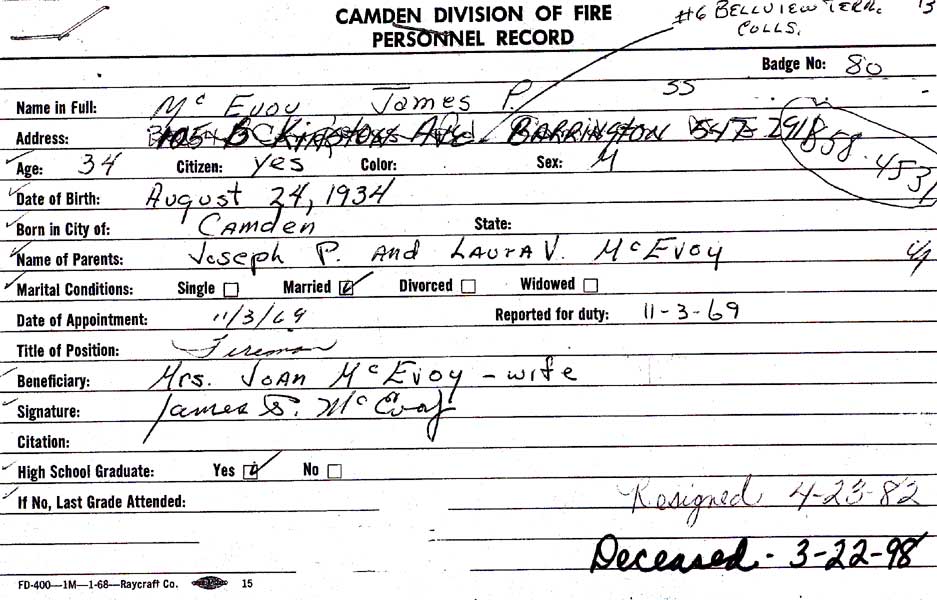 CAMDEN DIVISION OF FIRE
PERSONNEL RECORD
#6 BELLVIEW TERR.
COLLS.
13
Badge No: 80
Name in Full: Mc Evoy James P. 55
Address: Ave. BARRINGTON 547-2918 858-4531
Age: 34 Citizen: yes Color: Sex: M
Date of Birth: August 24, 1934
Born in City of: Camden State:
Name of Parents: Joseph P. And LAURA V. McEvoy
Marital Conditions: Single Married Divorced Widowed
Date of Appointment: 11/3/69 Reported for duty: 11-3-69
Title of Position: Fireman
Beneficiary: Mrs. JOAN McEvoy - wife
Signature: James McEvoy
Citation:
High School Graduate: Yes No
If No, Last Grade Attended:
Resigned 4-23-82
Deceased - 3-22-98
FD-400—1M—1-68—Raycraft Co. 15